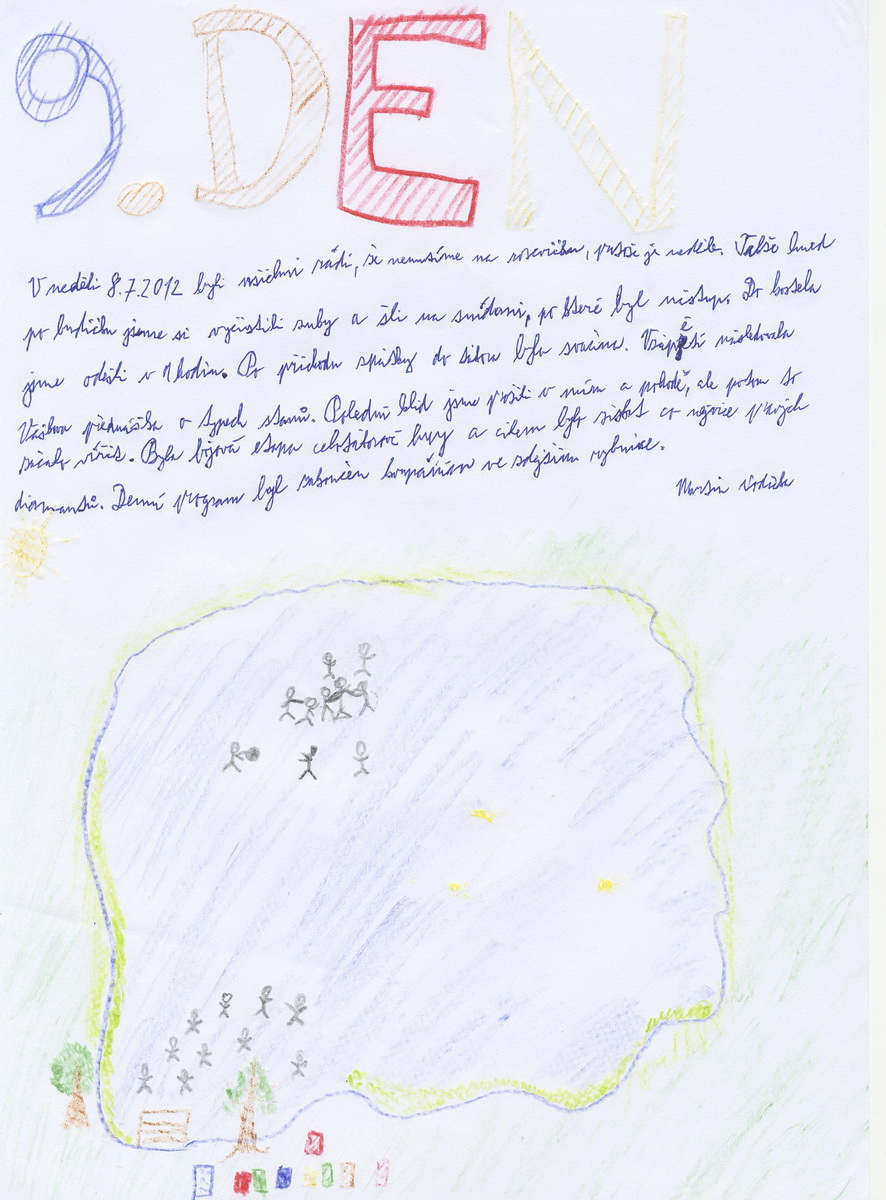 9. DEN
V neděli 8.7.2012 byli všichni rádi, že nemusíme na rozcvičku, protože je neděle. Takže hned
po budíčku jsme si vyčistili zuby a šli na snídani, po které byl nástup. Do kostela
jsme odešli v 9 hodin. Po příchodu zpátky do tábora byla svačina. Vzápětí následovala
Vaškova přednáška o typech stanů. Polední klid jsme prožili v míru a pohodě, ale potom to
začalo vířit. Byla bojová etapa celotáborové hry a cílem bylo získat co nejvíce
diamantů. Denní program byl zakončen koupáním ve zdejším rybníce.
Martin